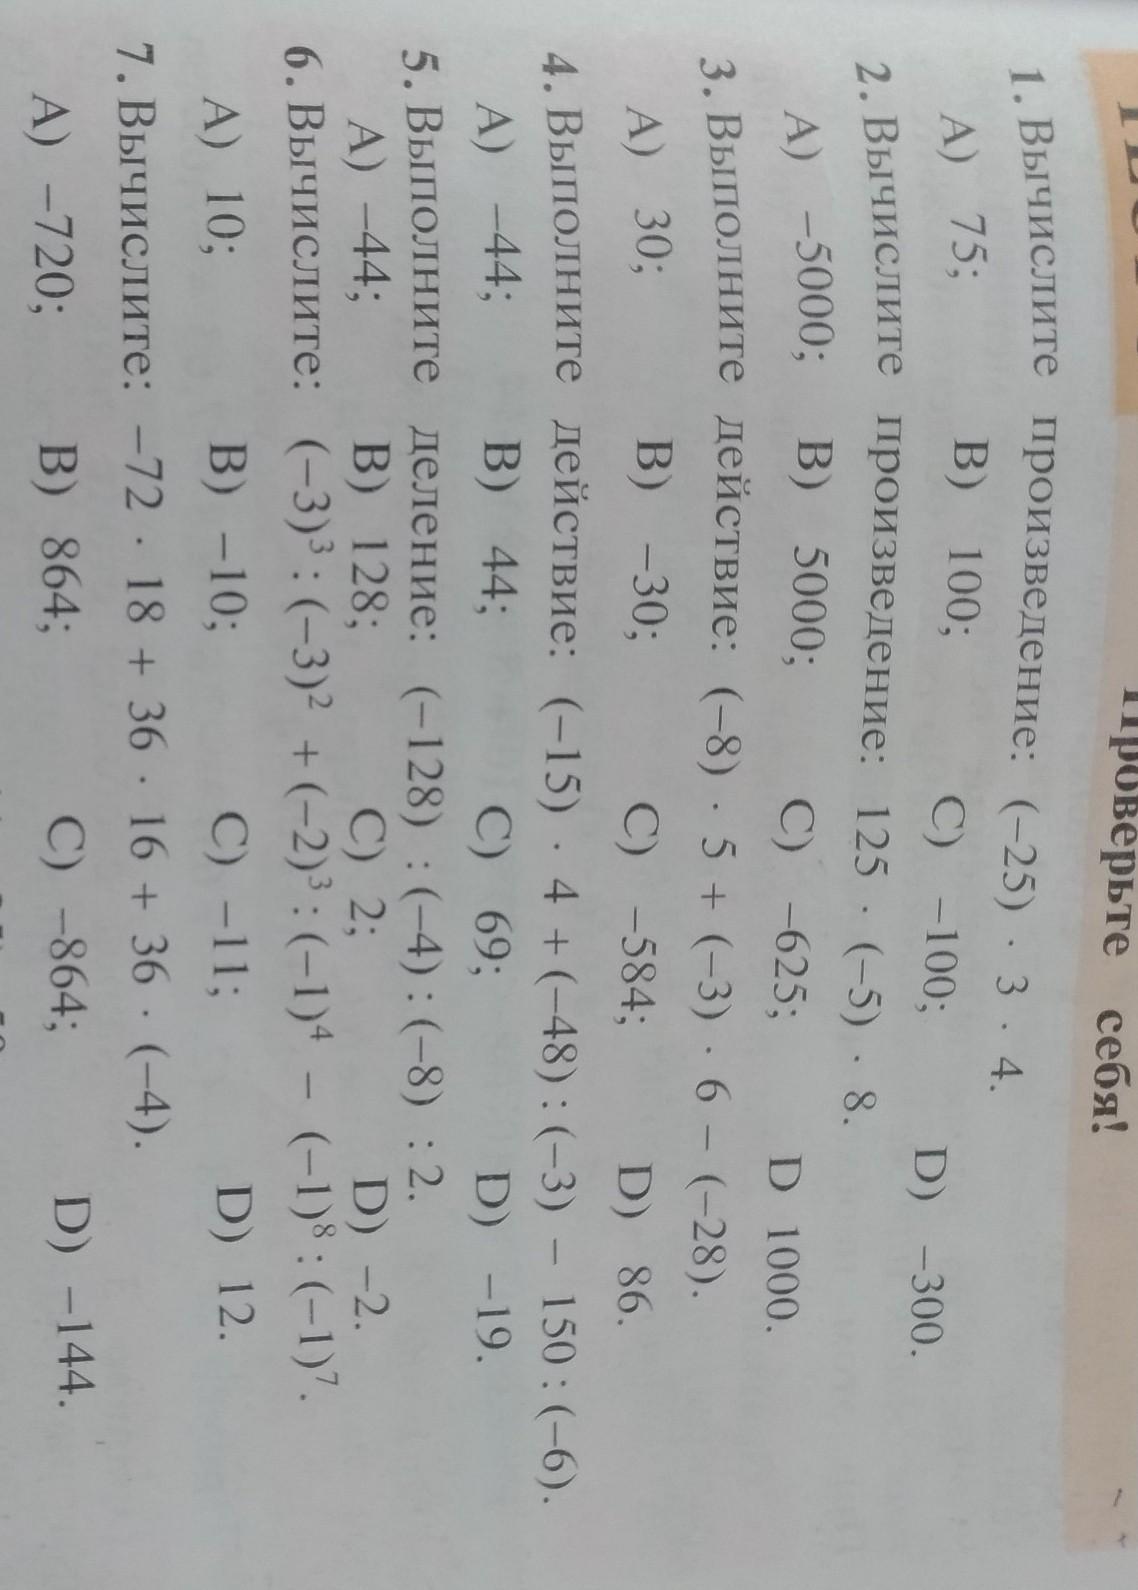 Проверьте себя!
1. Вычислите произведение: (–25) · 3 · 4.
A) 75; B) 100; C) –100; D) –300.
2. Вычислите произведение: 125 · (–5) · 8.
A) –5000; B) 5000; C) –625; D 1000.
3. Выполните действие: (–8) · 5 + (–3) · 6 – (–28).
A) 30; B) –30; C) –584; D) 86.
4. Выполните действие: (–15) · 4 + (–48) : (–3) – 150 : (–6).
A) –44; B) 44; C) 69; D) –19.
5. Выполните деление: (–128) : (–4) : (–8) : 2.
A) –44; B) 128; C) 2; D) –2.
6. Вычислите: (–3)³ : (–3)² + (–2)³ : (–1)⁴ – (–1)⁸ : (–1)⁷.
A) 10; B) –10; C) –11; D) 12.
7. Вычислите: –72 · 18 + 36 · 16 + 36 · (–4).
A) –720; B) 864; C) –864; D) –144.